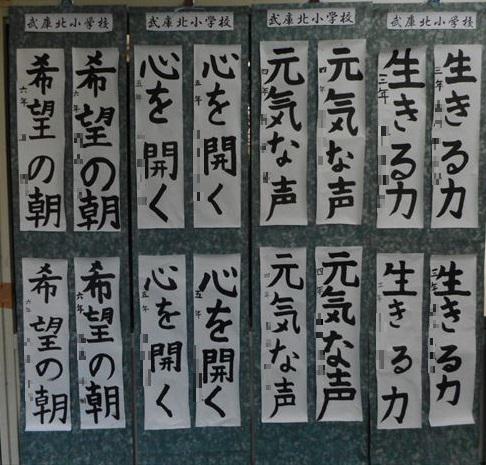 武庫北小学校
武庫北小学校
武庫北小学校
武庫北小学校
生きる力
三年
生きる力
三年
元気な声
四年
元気な声
四年
心を開く
五年
心を開く
五年
希望の朝
六年
希望の朝
六年
生きる力
三年
生きる力
三年
元気な声
四年
元気な声
四年
心を開く
五年
心を開く
五年
希望の朝
六年
希望の朝
六年